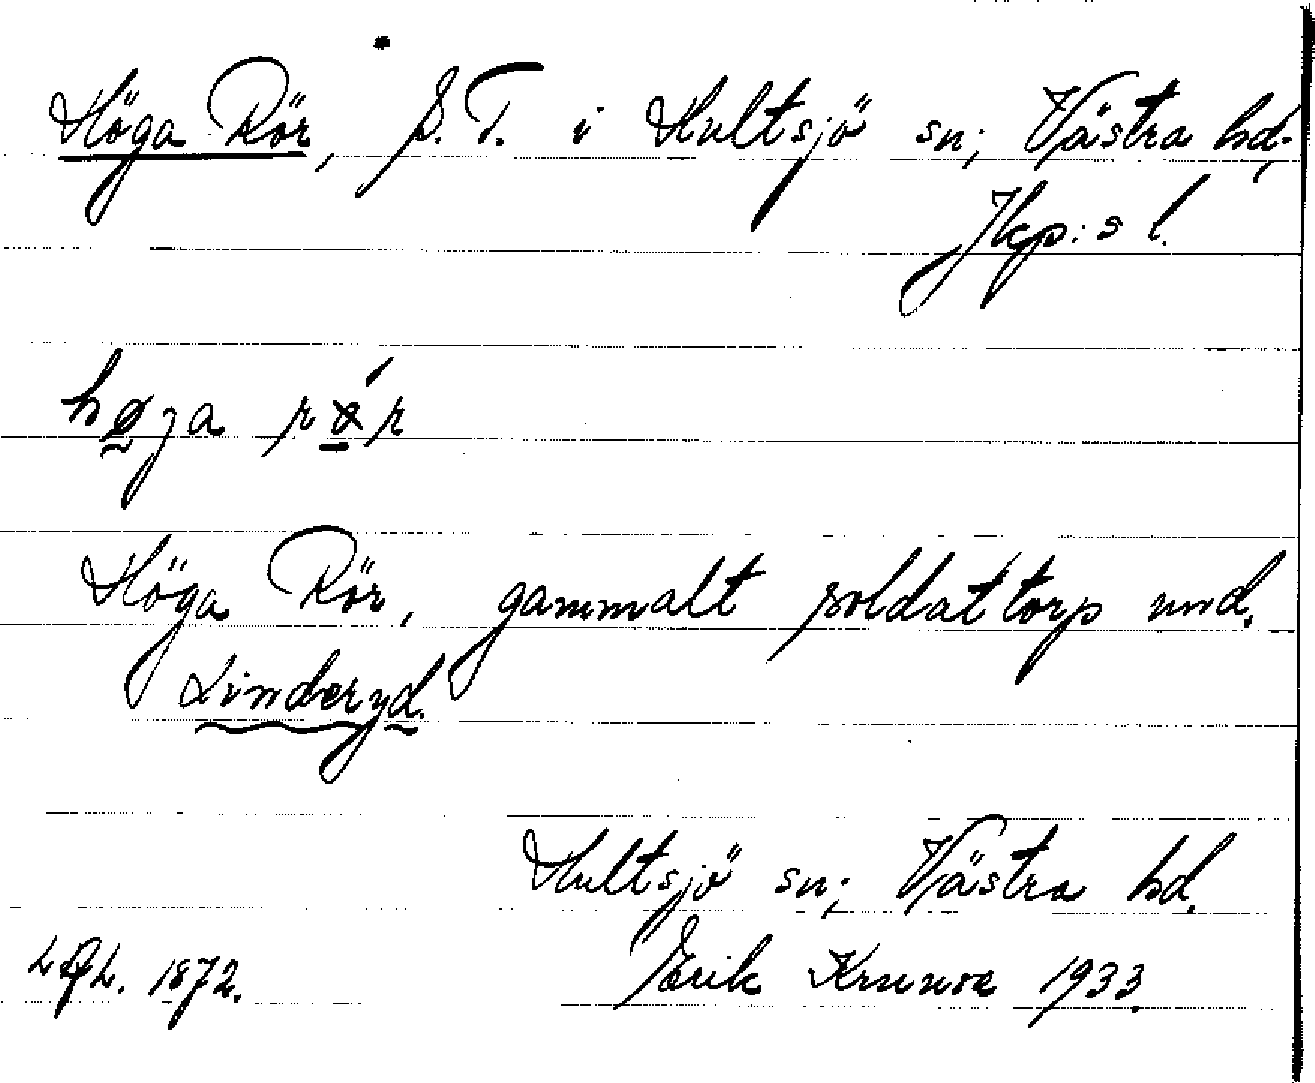 Höga Rör, S.T. i Hultsjö sn; Västra hd.
Jkp:s l.
Höga Rör, gammalt soldattorp und.
Linderyd.
Hultsjö sn; Västra hd.
1872. Erik 1933.